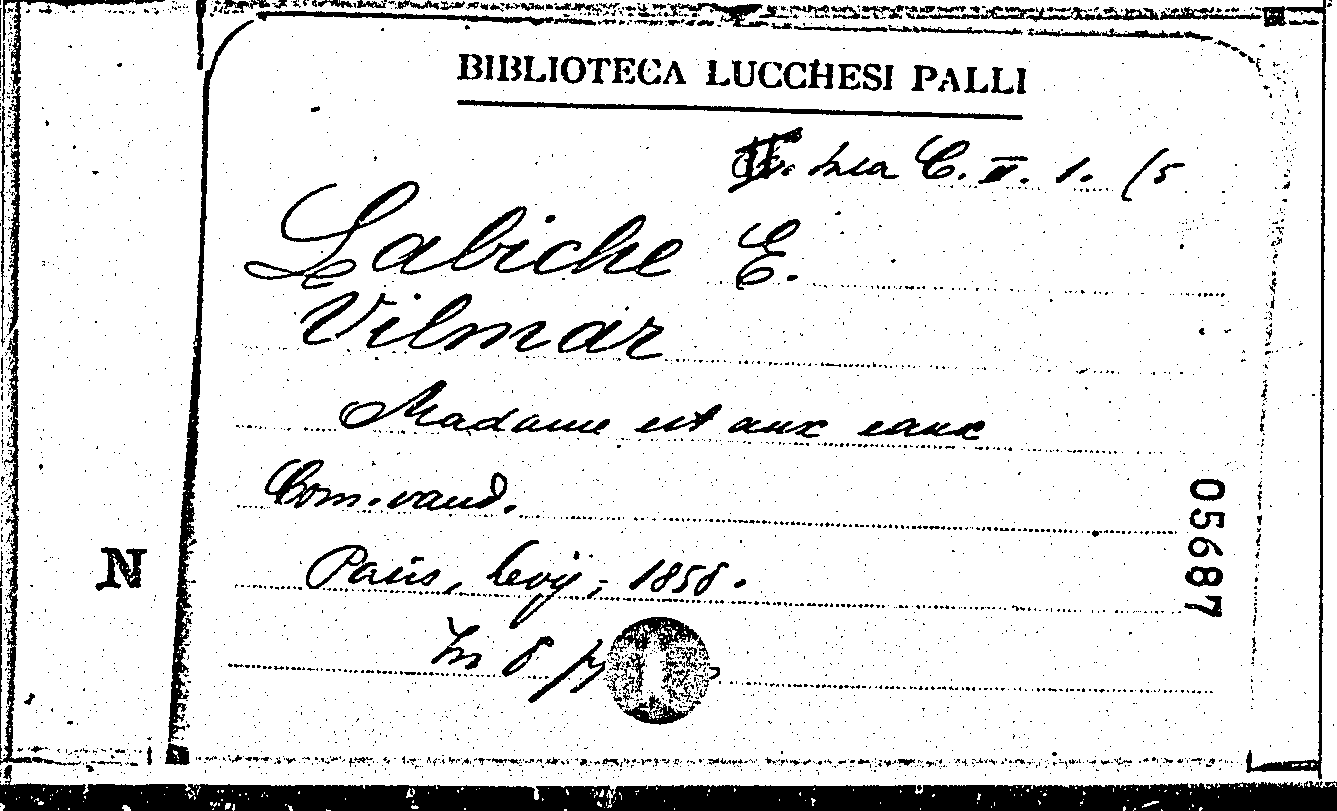 BIBLIOTECA LUCCHESI PALLI
C. II. 1. (5
Labiche E.
Vilmar
Madame est aux eaux
Com. vaud.
Paris, Levy, 1858.
In 8
05687
N